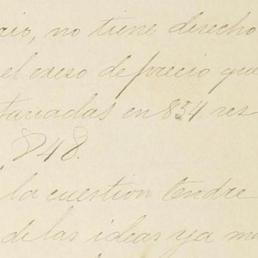 rio, no tiene derecho
el exeso de precio que
tariadas en 834 res
848.
la cuestion tendre
de las ideas ya m